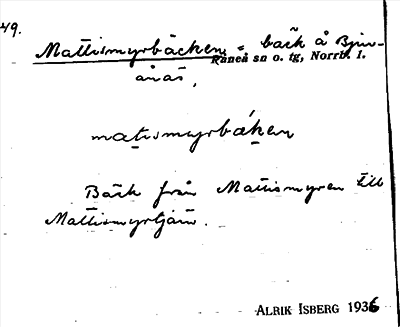 49.
Mattismyrbäcken = bäck å Björn-
Råneå sn o. tg, Norrb. l.
ånäs,
matismyrbäken
Bäck från Mattismyren till
Mattismyrtjärn.
ALRIK ISBERG 1936